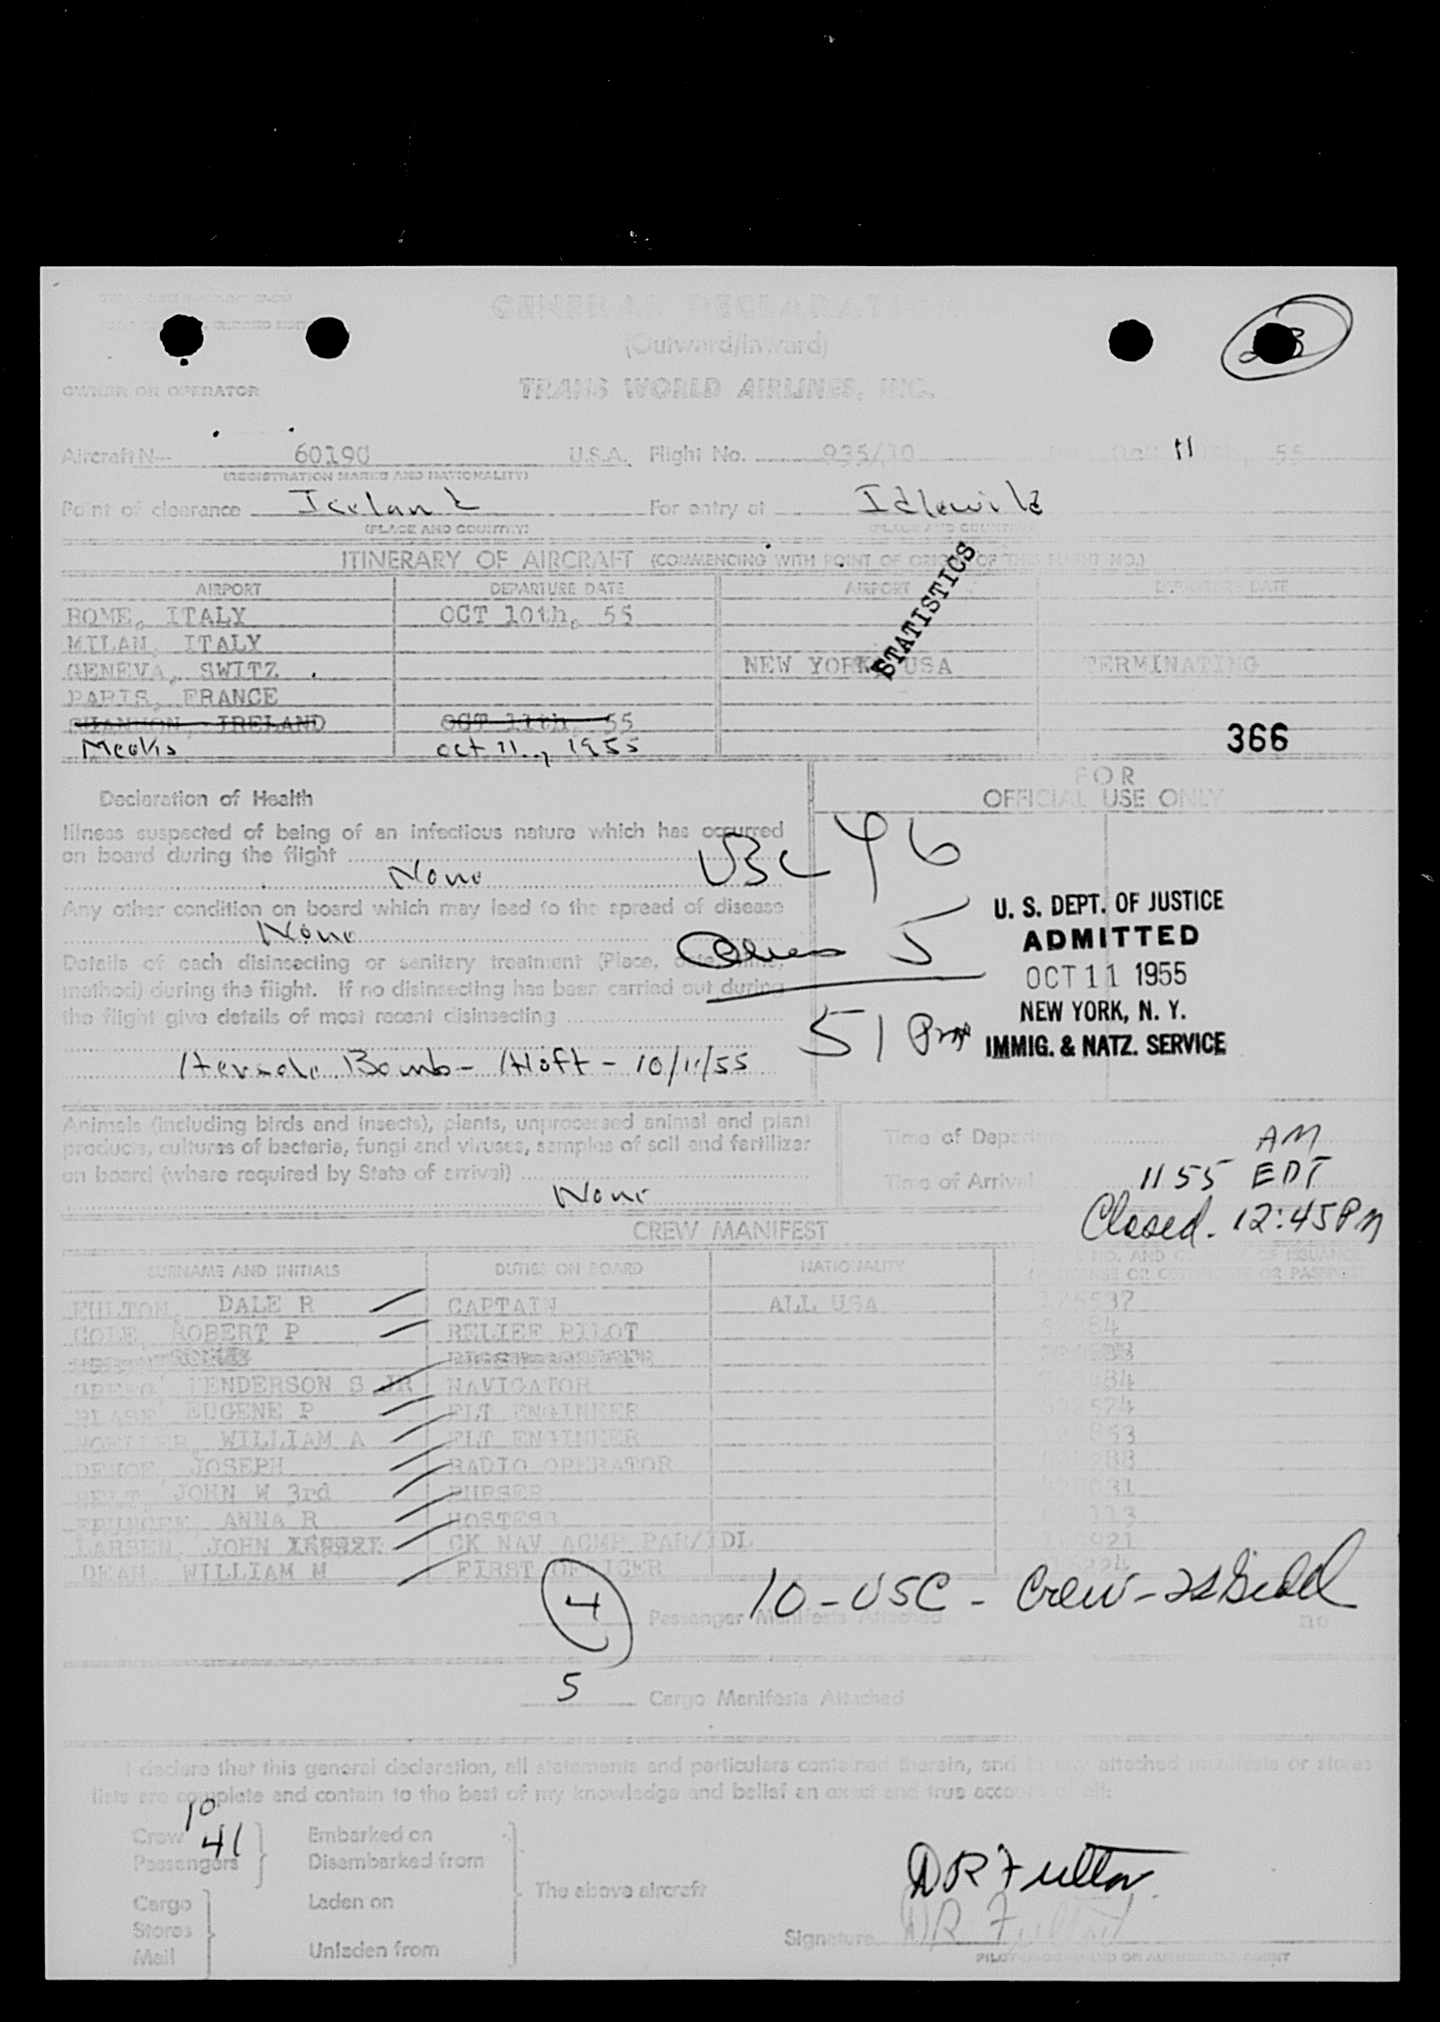 GENERAL DECLARATION
(Outward/Inward)
OWNER OR OPERATOR TRANS WORLD AIRLINES, INC.
Aircraft N- 60190 U.S.A. Flight No. 935/10 11 55
(REGISTRATION MARKS AND NATIONALITY)
Point of clearance Iceland For entry at Idlewild
(PLACE AND COUNTRY) (PLACE AND COUNTRY)
ITINERARY OF AIRCRAFT (COMMENCING WITH POINT OF ORIGIN OF THIS FLIGHT NO.)
AIRPORT DEPARTURE DATE AIRPORT DEPARTURE DATE
STATISTICS
ROME, ITALY OCT 10th, 55
MILAN, ITALY
GENEVA, SWITZ. NEW YORK, USA TERMINATING
PARIS, FRANCE
SHANNON, IRELAND OCT 11th, 55
Meeks oct 11., 1955
366
FOR
OFFICIAL USE ONLY
Declaration of Health
Illness suspected of being of an infectious nature which has occurred
on board during the flight
None
Any other condition on board which may lead to the spread of disease
None
Details of each disinsecting or sanitary treatment (Place, date, time,
method) during the flight. If no disinsecting has been carried out during
the flight give details of most recent disinsecting
Bomb - 10/11/55
46
5
51
U. S. DEPT. OF JUSTICE
ADMITTED
OCT 11 1955
NEW YORK, N. Y.
IMMIG. & NATZ. SERVICE
Animals (including birds and insects), plants, unprocessed animal and plant
products, cultures of bacteria, fungi and viruses, samples of soil and fertilizer
on board (where required by State of arrival)
None
Time of Departure
AM
Time of Arrival 1155 EDT
Closed. 12:45PM
CREW MANIFEST
SURNAME AND INITIALS DUTIES ON BOARD NATIONALITY
FULTON, DALE R CAPTAIN ALL USA
COLE, ROBERT P RELIEF PILOT
HENDERSON S JR NAVIGATOR
EUGENE P FLT ENGINEER
WILLIAM A FLT ENGINEER
JOSEPH RADIO OPERATOR
JOHN W 3rd PURSER
ANNA R HOSTESS
LARSEN, JOHN CK NAV ACMP PAR/IDL
DEAN, WILLIAM M FIRST OFFICER
4 Passenger Manifests Attached
10 - USC - Crew -
no
5 Cargo Manifests Attached
I declare that this general declaration, all statements and particulars contained therein, and in any attached manifests or stores
lists are complete and contain to the best of my knowledge and belief an exact and true account of all:
Crew 10 Embarked on
Passengers 41 Disembarked from
The above aircraft
Cargo Laden on
Stores
Mail Unladen from
DR Fulton
Signature DR Fulton
PILOT IN COMMAND OR AUTHORIZED AGENT